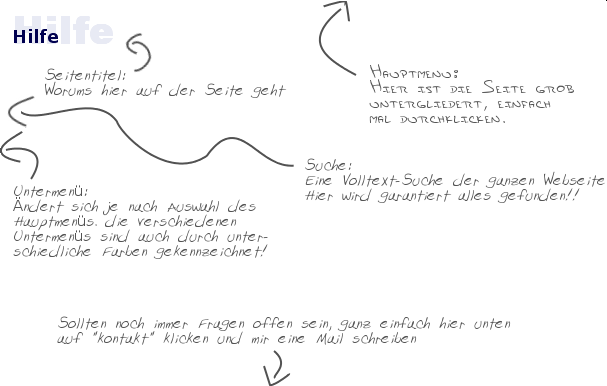 Hilfe
Seitentitel:
Worums hier auf der Seite geht
Hauptmenü:
Hier ist die Seite grob
untergliedert, einfach
mal durchklicken.
Suche:
Eine Volltext-Suche der ganzen Webseite
Hier wird garantiert alles gefunden!!
Untermenü:
Ändert sich je nach Auswahl des
Hauptmenüs. die verschiedenen
Untermenüs sind auch durch unter-
schiedliche Farben gekennzeichnet!
Sollten noch immer Fragen offen sein, ganz einfach hier unten
auf "kontakt" klicken und mir eine Mail schreiben